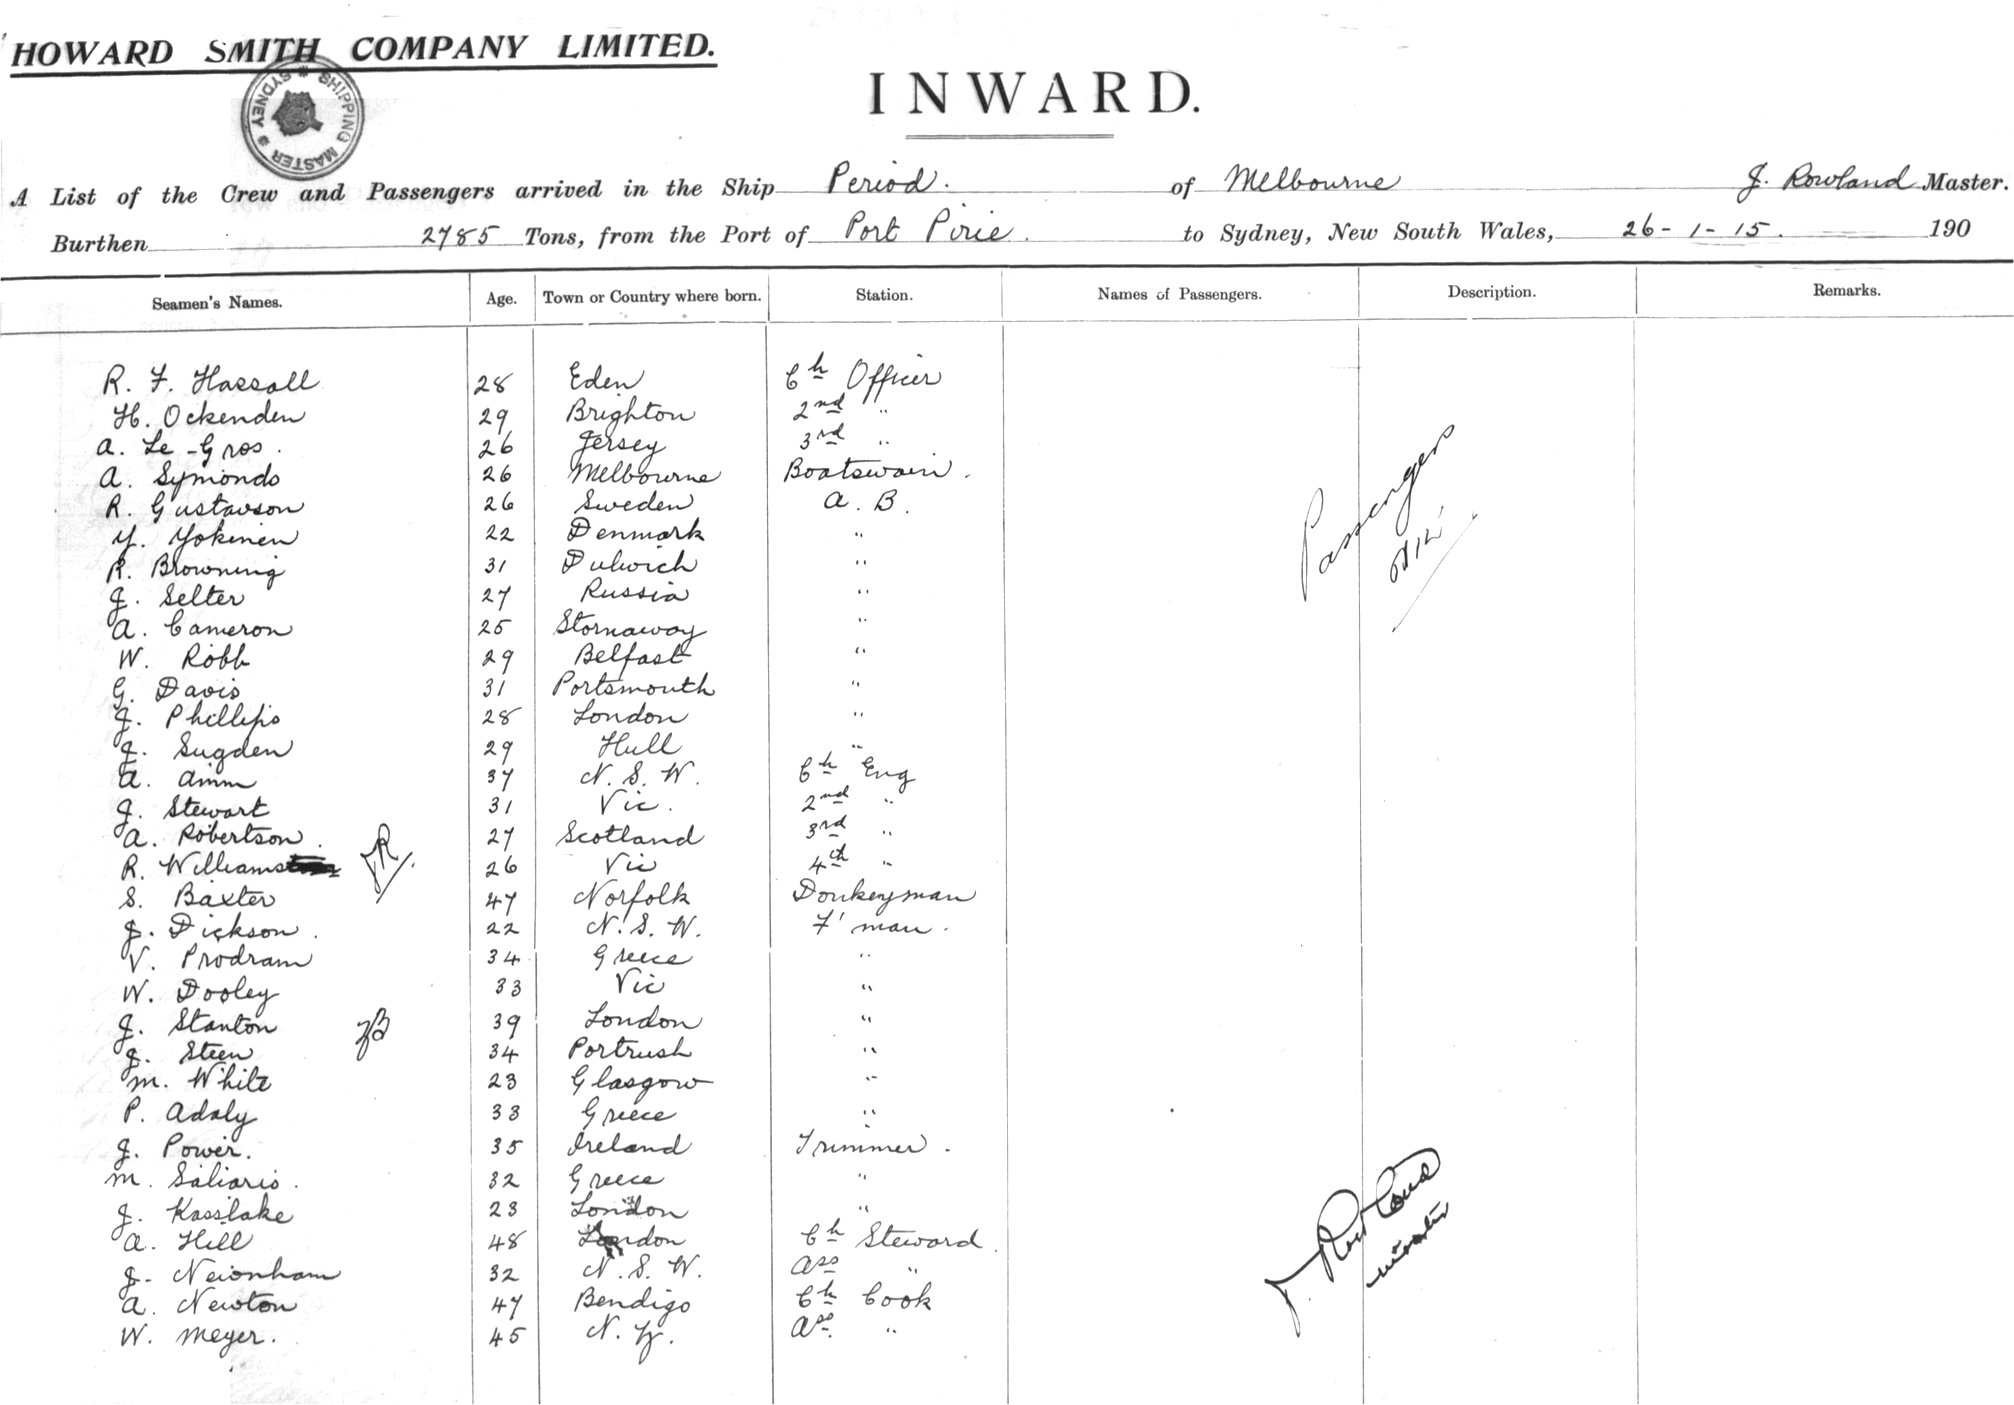 HOWARD SMITH COMPANY LIMITED.
SHIPPING MASTER * SYDNEY *
INWARD.
A List of the Crew and Passengers arrived in the Ship Period. of Melbourne J. Rowland Master.
Burthen 2785 Tons, from the Port of Port Pirie. to Sydney, New South Wales, 26-1-15. 190
Seamen's Names. Age. Town or Country where born. Station. Names of Passengers. Description. Remarks.
R. F. Hassall 28 Eden Ch Officer
H. Ockenden 29 Brighton 2nd "
A. Le-Gros. 26 Jersey 3rd "
A. Symonds 26 Melbourne Boatswain.
R. Gustavson 26 Sweden A. B.
Y. Yokinen 22 Denmark "
R. Browning 31 Dulwich "
J. Selter 27 Russia "
A. Cameron 25 Stornaway "
W. Robb 29 Belfast "
G. Davis 31 Portsmouth "
J. Phillips 28 London "
J. Sugden 29 Hull "
A. Amm 37 N. S. W. Ch Eng
J. Stewart 31 Vic. 2nd "
A. Robertson. 27 Scotland 3rd "
R. Williams JR 26 Vic 4th "
S. Baxter 47 Norfolk Donkeyman
J. Dickson. 22 N. S. W. F'man.
V. Prodram 34 Greece "
W. Dooley 33 Vic "
J. Stanton 39 London "
J. Steen 34 Portrush "
M. White 23 Glasgow "
P. Adaly 33 Greece "
J. Power. 35 Ireland Trimmer.
M. Saliaris. 32 Greece "
J. Kasslake 23 London "
A. Hill 48 London Ch Steward.
J. Neionham 32 N. S. W. Ass "
A. Newton 47 Bendigo Ch Cook
W. Meyer. 45 N. Z. Ass. "
Passengers
Nil
J. Rowland
Master